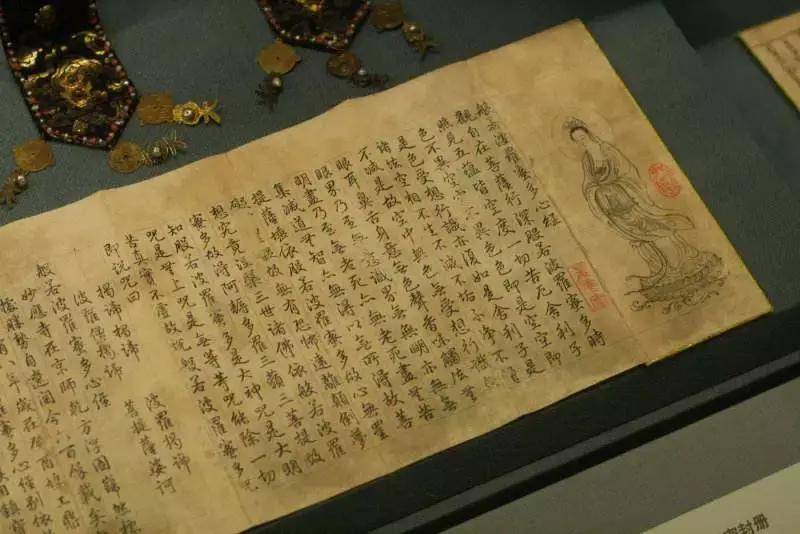 般若波羅蜜多心經
觀自在菩薩行深般若波羅蜜多時
照見五蘊皆空度一切苦厄舍利子
色不異空空不異色色即是空空即
是色受想行識亦復如是舍利子是
諸法空相不生不滅不垢不淨不增
不減是故空中無色無受想行識無
眼耳鼻舌身意無色聲香味觸法無
眼界乃至無意識界無無明亦無無
明盡乃至無老死亦無老死盡無苦
集滅道無智亦無得以無所得故菩
提薩埵依般若波羅蜜多故心無罣
礙無罣礙故無有恐怖遠離顛倒夢
想究竟涅槃三世諸佛依般若波羅
蜜多故得阿耨多羅三藐三菩提故
知般若波羅蜜多是大神咒是大明
咒是無上咒是無等等咒能除一切
苦真實不虛故說般若波羅蜜多咒
即說咒曰
揭諦揭諦 波羅揭諦
波羅僧揭諦 菩提薩婆訶
般若波羅蜜多心經
妙應寺在京師乾方浮圖
勝勢自遼開今六百餘載矣
封册